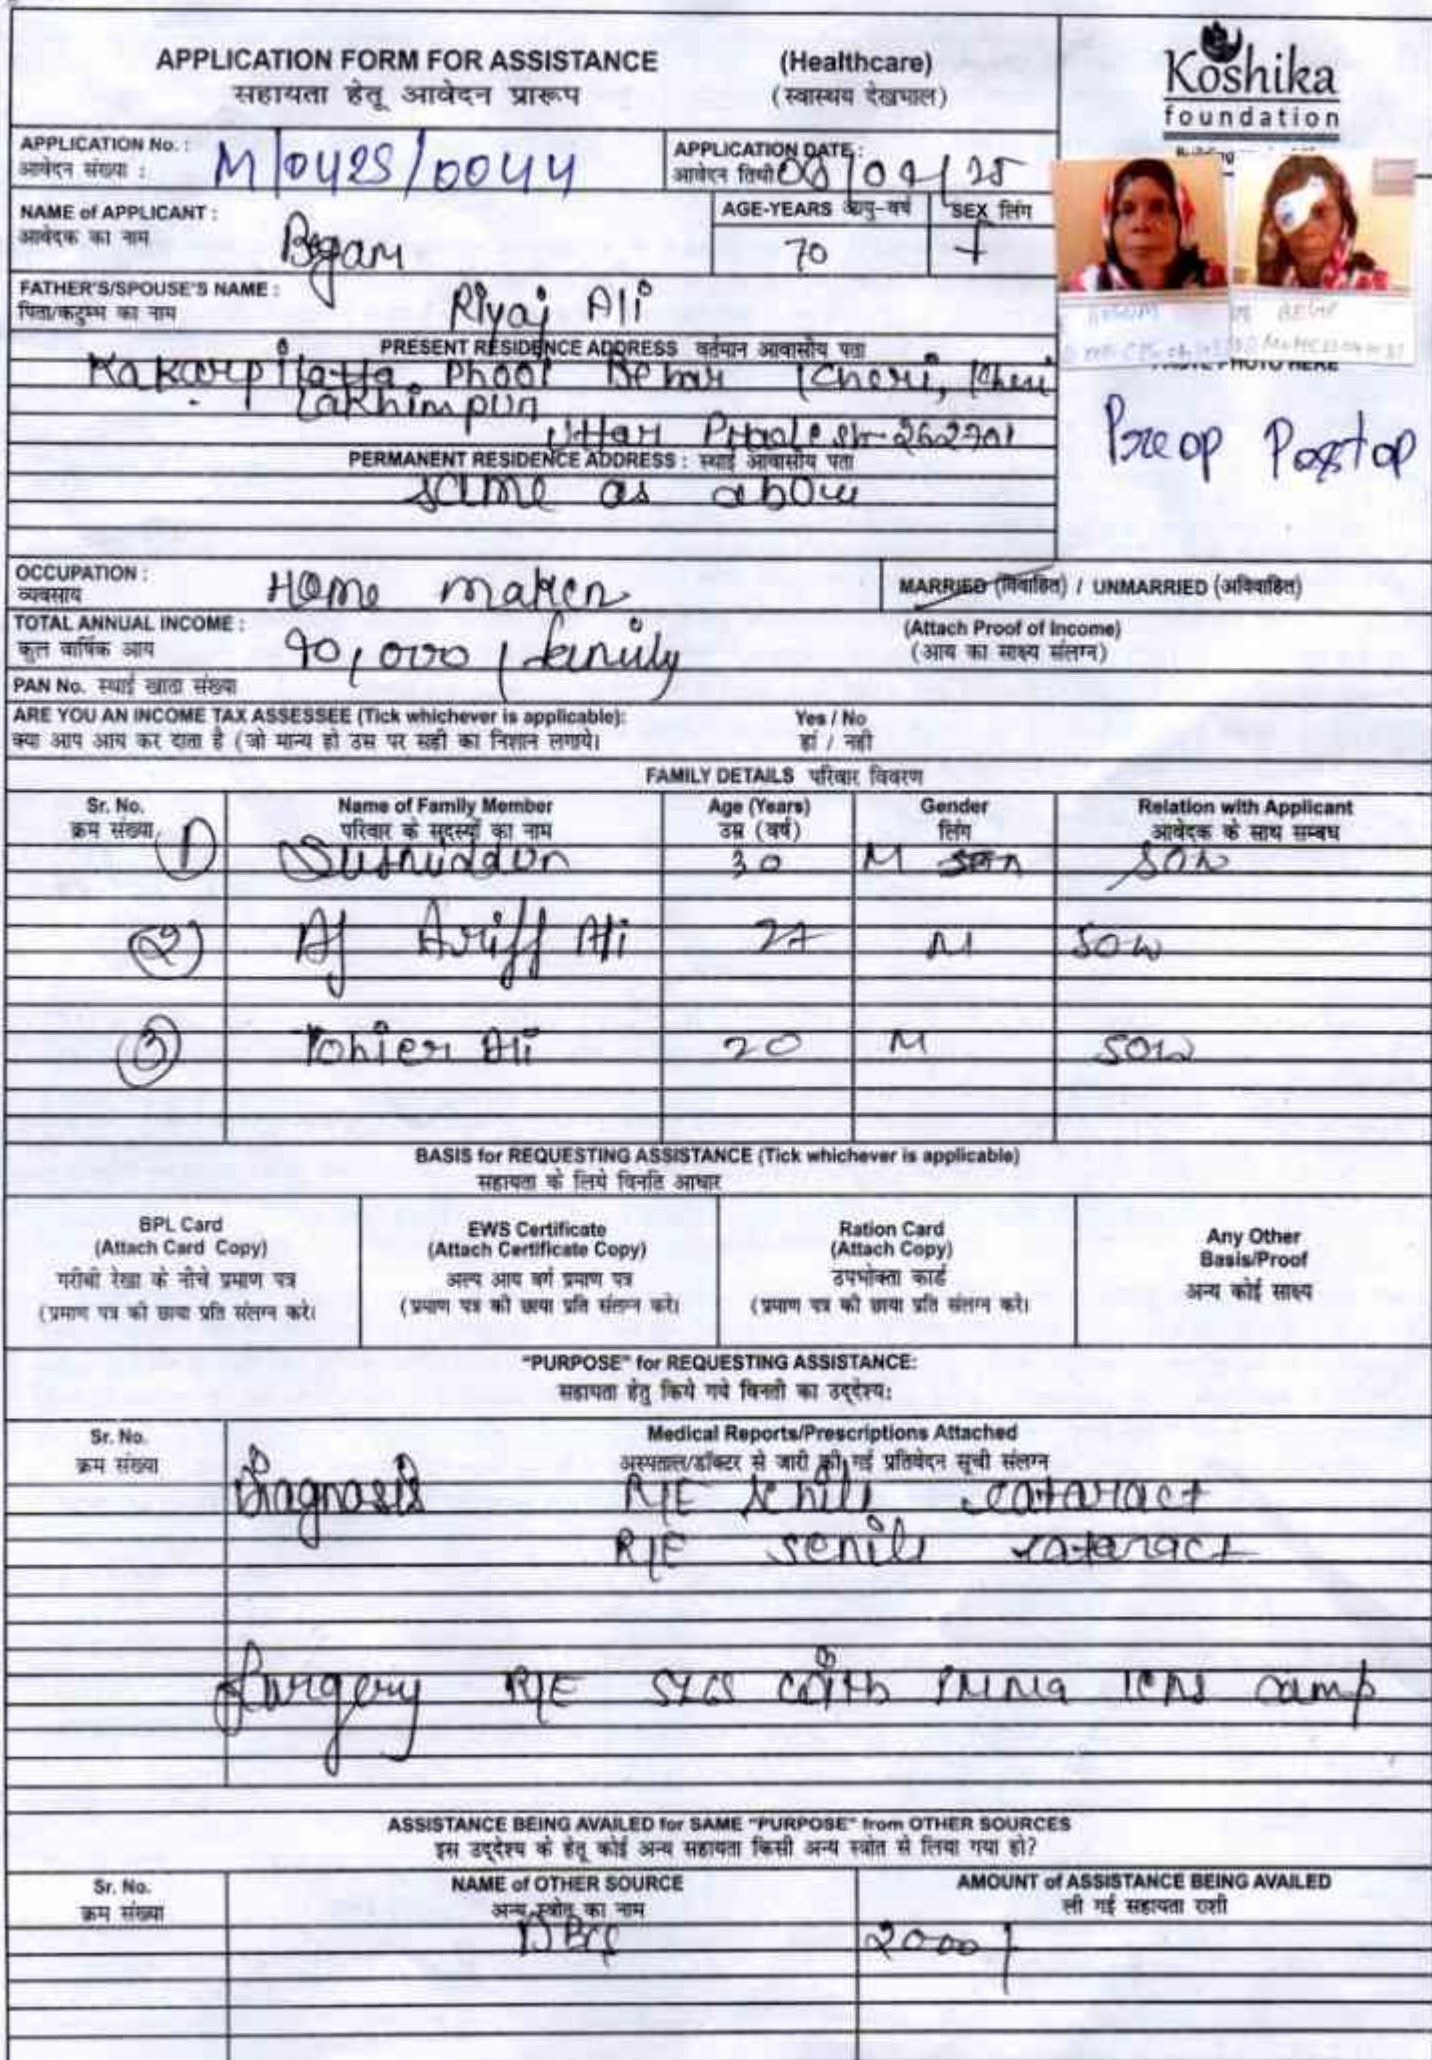 APPLICATION FORM FOR ASSISTANCE (Healthcare)
सहायता हेतू आवेदन प्रारूप (स्वास्थय देखभाल)
Koshika
foundation
APPLICATION No. : M/0425/0044
आवेदन संख्या :
APPLICATION DATE :
आवेदन तिथी
NAME of APPLICANT : Begam
आवेदक का नाम
AGE-YEARS आयु-वर्ष 70
SEX लिंग F
FATHER'S/SPOUSE'S NAME : Riyaj Ali
पिता/कटुम्भ का नाम
PRESENT RESIDENCE ADDRESS वर्तमान आवासीय पता
Phool Behar Kheri, Kheri
Lakhimpur
Uttar Pradesh-262701
PERMANENT RESIDENCE ADDRESS : स्थाई आवासीय पता
same as above
PASTE PHOTO HERE
Preop Postop
OCCUPATION : Home maker
व्यवसाय
MARRIED (विवाहित) / UNMARRIED (अविवाहित)
TOTAL ANNUAL INCOME : 90,000 / family
कुल वार्षिक आय
(Attach Proof of Income)
(आय का साक्ष्य संलग्न)
PAN No. स्थाई खाता संख्या
ARE YOU AN INCOME TAX ASSESSEE (Tick whichever is applicable): Yes / No
क्या आप आय कर दाता है (जो मान्य हो उस पर सही का निशान लगाये। हां / नही
FAMILY DETAILS परिवार विवरण
Sr. No. Name of Family Member Age (Years) Gender Relation with Applicant
क्रम संख्या परिवार के सदस्यों का नाम उम्र (वर्ष) लिंग आवेदक के साथ सम्बध
1 30 M son
2 Ariff Ali 27 M son
3 Ali 20 M son
BASIS for REQUESTING ASSISTANCE (Tick whichever is applicable)
सहायता के लिये विनति आधार
BPL Card
(Attach Card Copy)
गरीबी रेखा के नीचे प्रमाण पत्र
(प्रमाण पत्र की छाया प्रति संलग्न करे।
EWS Certificate
(Attach Certificate Copy)
अल्प आय वर्ग प्रमाण पत्र
(प्रमाण पत्र की छाया प्रति संलग्न करे।
Ration Card
(Attach Copy)
उपभोक्ता कार्ड
(प्रमाण पत्र की छाया प्रति संलग्न करे।
Any Other
Basis/Proof
अन्य कोई साक्ष्य
"PURPOSE" for REQUESTING ASSISTANCE:
सहायता हेतु किये गये विनती का उद्देश्य:
Sr. No. Medical Reports/Prescriptions Attached
क्रम संख्या अस्पताल/डॉक्टर से जारी की गई प्रतिवेदन सूची संलग्न
Diagnosis R/E senile cataract
R/E senile cataract
Surgery R/E SICS with camp
ASSISTANCE BEING AVAILED for SAME "PURPOSE" from OTHER SOURCES
इस उद्देश्य के हेतू कोई अन्य सहायता किसी अन्य स्त्रोत से लिया गया हो?
Sr. No. NAME of OTHER SOURCE AMOUNT of ASSISTANCE BEING AVAILED
क्रम संख्या अन्य स्त्रोत का नाम ली गई सहायता राशी
2000/